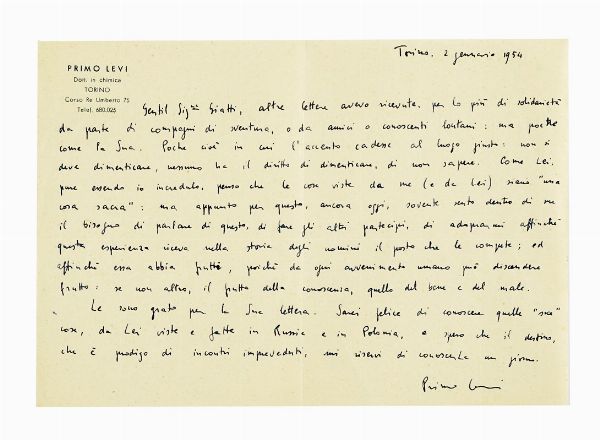 Torino, 2 gennaio 1954
PRIMO LEVI
Dott. in chimica
TORINO
Corso Re Umberto 75
Telef. 680.025
Gentil Sig.na Giatti, altre lettere avevo ricevute, per lo più di solidarietà
da parte di compagni di sventura, o da amici o conoscenti lontani: ma poche
come la Sua. Poche cioè in cui l'accento cadesse al luogo giusto: non si
deve dimenticare, nessuno ha il diritto di dimenticare, di non sapere. Come Lei,
pure essendo io incredulo, penso che le cose viste da me (e da Lei) siano "una
cosa sacra": ma appunto per questo, ancora oggi, sovente sento dentro di me
il bisogno di parlare di questo, di fare gli altri partecipi, di adoperarmi affinché
questa esperienza riceva nella storia degli uomini il posto che le compete; ed
affinché essa abbia frutto, poiché da ogni avvenimento umano può discendere
frutto: se non altro, il frutto della conoscenza, quello del bene e del male.
Le sono grato per la Sua lettera. Sarei felice di conoscere quelle
cose, da Lei viste e fatte in Russia e in Polonia, e spero che il destino,
che è prodigo di incontri impreveduti, mi riservi di conoscerLa un giorno.
Primo Levi